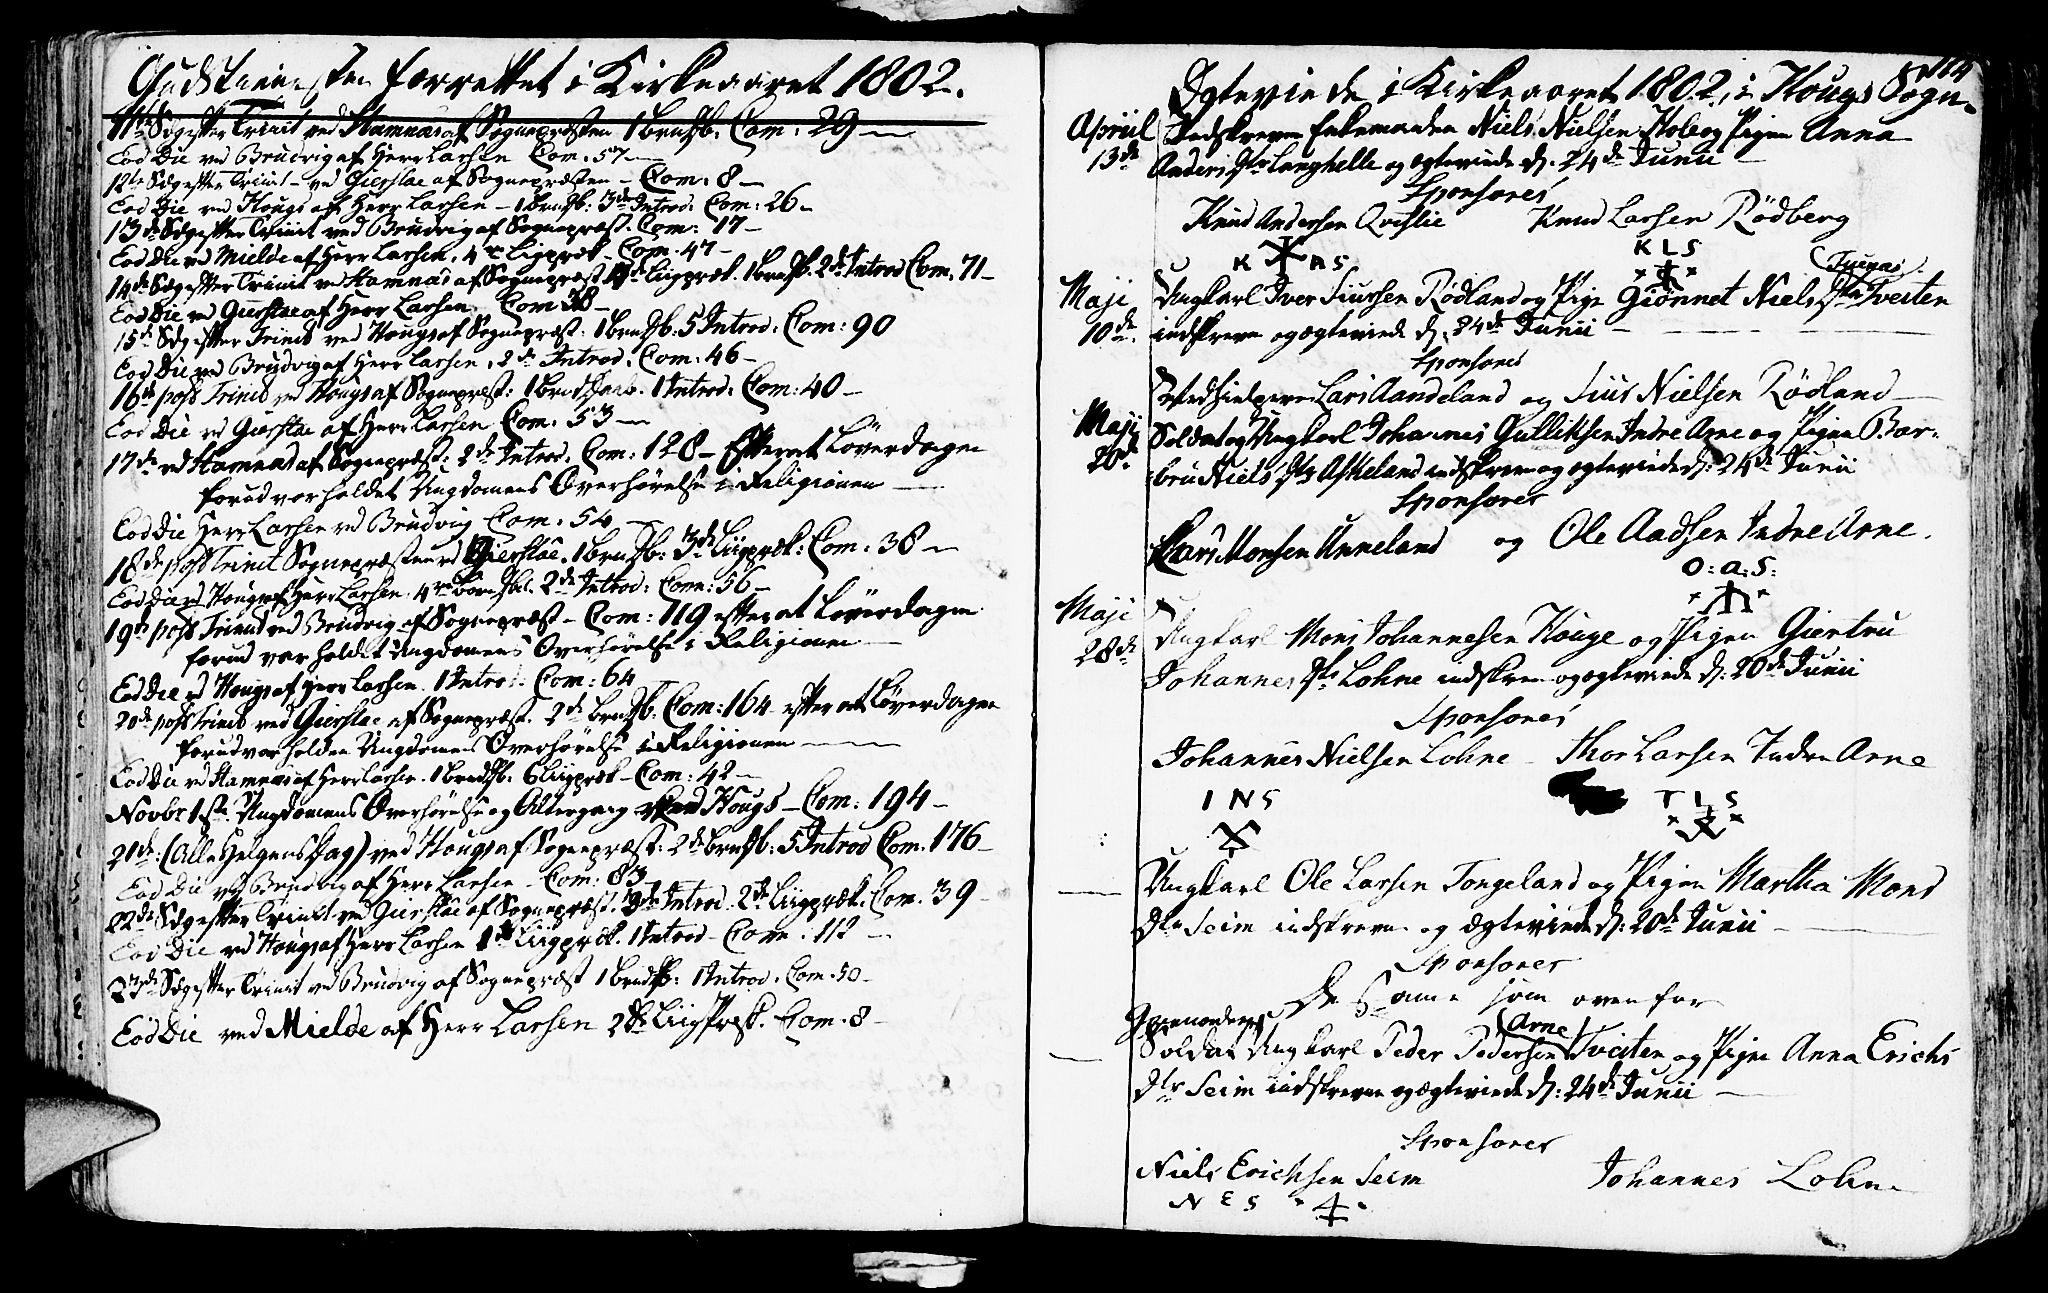 Gudstienesten forrettet i Kirkeaaret 1802.
11te Søgeftter Trinit ved Hamnæs af Sognepræsten 1 brudsb. Com: 29 —
Eod Die ved Brudvig af Herr Larsen Com. 57 —
12te Søgeftter Trinit – ved Gierstae af Sognepræsten – Com: 8 —
Eod Die ved Hougs af Herr Larsen – 1 brudsb: 3de Introd: Com: 26 –
13de Søgeftter Trinit ved Brudvig af Sognepræst. Com: 17 –
Eod Die ved Mielde af Herr Larsen, 4re Ligpræk – Com. 47 –
14de Søgeftter Trinit ved Hamnæs af Sognepræst Liigpræk. 1 brudsb. 2de Introd Com. 71 –
Eod Die ved Gierstae af Herr Larsen Com 38 –
15de Søgeftter Trinit ved Hougs af Sognepræst: 1 brudsb. 5 Introd. Com: 90
Eod Die ved Brudvig af Herr Larsen, 2de Introd. Com: 46 –
16de post Trinit ved Hougs af Sognepræst: 1 brud 1 Introd. Com: 40 –
Eod Die ved Gierstae af Herr Larsen Com. 53 —
17de ved Hamnæs af Sognepræst. 2de Introd. Com: 128 – Efterat Löverdagen
forud var holdet Ungdomens Overhörelse i Religionen —
Eod Die Herr Larsen ved Brudvig Com. 54 –
18de post Trinit Sognepræsten ved Gierstae. 1 brudsb: 3de Liigpræk: Com: 38 –
Eod Die ved Hougs af Herr Larsen. 4re 2de Introd: Com: 56 –
19de post Trinit ved Brudvig af Sognepræst – Com: 119 efterat Löverdagen
forud var holdet Ungdomens Overhörelse i Religionen —
Eod Die ved Hougs af Herr Larsen. 1 Introd. Com: 64
20de post Trinit ved Gierstae af Sognepræst. 2de brudsb. Com: 164 – efter at Löverdagen
forud var holden Ungdomens Overhörelse i Religionen —
Eod Die ved Hamnæs af Herr Larsen. 1 brudsb: 6 Liigpræk – Com: 42 –
Novbr 1ste Ungdomens Overhörelse og Altergang ved Hougs – Com: 194 –
21de: (Alle Helgens Dag) ved Hougs af Sognepræst: 2de brudsb: 5 Introd Com. 176 –
Eod Die ved Brudvig af Herr Larsen – Com: 83
22de Søgeftter Trinit ved Gierstae af Sognepræst. 3de Introd. 2de Liigpræk. Com. 39 –
Eod Die ved Hougs af Herr Larsen Liigpræk. 1 Introd – Com: 112 –
23de Søgeftter Trinit ved Brudvig af Sognepræst 1 brudsb: 1 Introd. Com. 50 –
Eod Die ved Mielde af Herr Larsen 2de LiigPræk. Com. 8 –
114
Ægteviede i Kirkeaaret 1802, i Hougs Sogn.
Apriil
13de
Indskreven Enkemanden Niels Nielsen og Pigen Anna
Anders Dtr Langhelle og ægteviede d: 24de Junii –
Sponsores
Knud Andersen Knud Larsen Rödberg
K A S K L S
Maji
10de
(Tuenæs)
Ungkarl Iver Siursen Rödland og Pige Giönnet Niels Dtr Tveiten
indskreven og ægteviede d: 24de Junii –
Sponsores
Medhielperen Lars Aandeland og Siur Nielsen Rödland –
Maji
20de
Soldat og Ungkarl Johannes Gulliksen Indre Arne og Pigen Bar-
bru Niels Dtr Askeland indskreven og ægteviede d: 24de Junii
Sponsores
Lars Monsen Unneland og Ole Aadsen Indre Arne.
O: A: S:
Maji
28de
Ungkarl Mons Johannesen Houge og Pigen Giertru
Johannes Dtr Lohne indskreven og ægteviede d: 20de Junii
Sponsores
Johannes Nielsen Lohne – Thor Larsen Indre Arne
I N S T L S
— Ungkarl Ole Larsen Tongeland og Pigen Martha Mons
Dtr Seim indskreven og Ægteviede d: 20de Junii –
Sponsores
De Samme som ovenfor
(Arne)
— Soldat Ungkarl Peder Pedersen Tveiten og Pigen Anna Erichs
Dtr Seim indskreven og ægteviede d: 24de Junii —
Sponsores
Niels Erichsen Seim Johannes Lohne
N E S